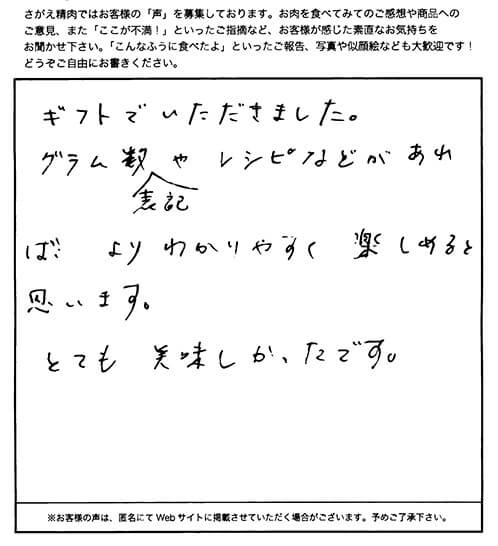 さがえ精肉ではお客様の「声」を募集しております。お肉を食べてみてのご感想や商品への
ご意見、また「ここが不満！」といったご指摘など、お客様が感じた素直なお気持ちを
お聞かせ下さい。「こんなふうに食べたよ」といったご報告、写真や似顔絵なども大歓迎です！
どうぞご自由にお書きください。
ギフトでいただきました。
グラム数や レシピなどがあれ
表記
ば よりわかりやすく 楽しめると
思います。
とても 美味しかったです。
※お客様の声は、匿名にてWebサイトに掲載させていただく場合がございます。予めご了承下さい。